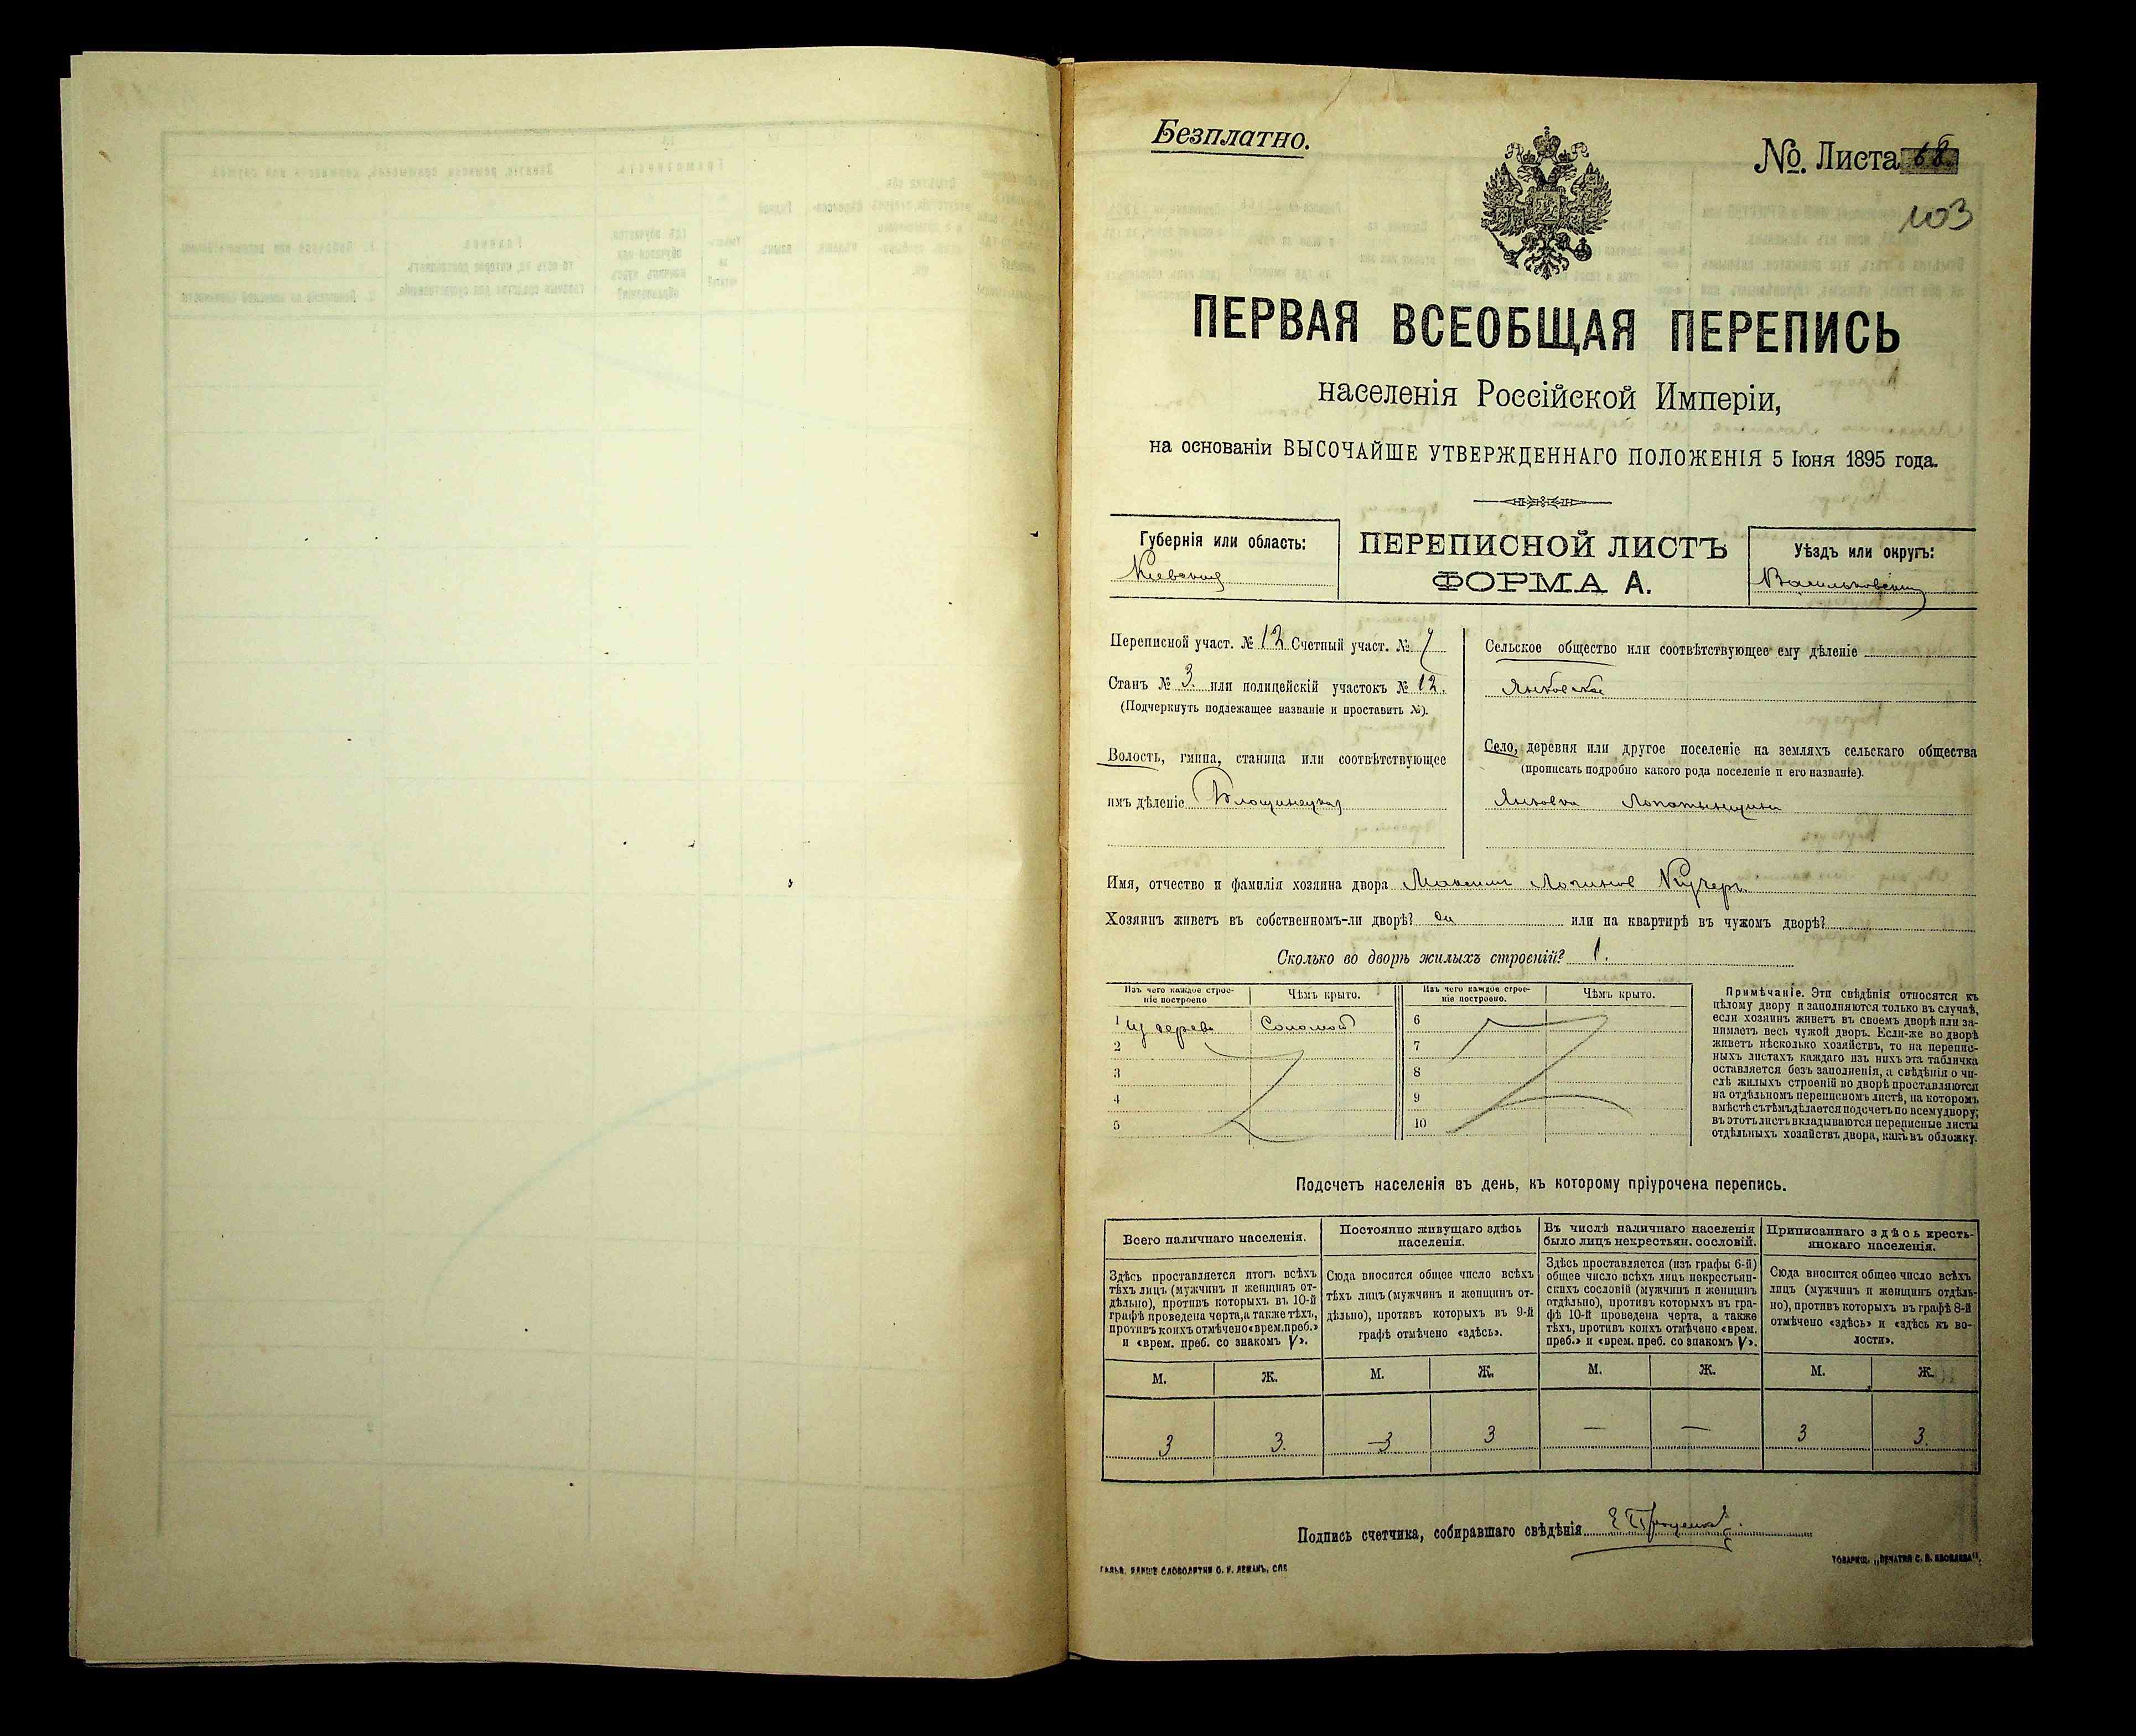 Безплатно.
№. Листа 68
103
ПЕРВАЯ ВСЕОБЩАЯ ПЕРЕПИСЬ
населенія Россійской Имперіи,
на основаніи ВЫСОЧАЙШЕ УТВЕРЖДЕННАГО ПОЛОЖЕНІЯ 5 Іюня 1895 года.
Губернія или область:
Киевская
ПЕРЕПИСНОЙ ЛИСТЪ
ФОРМА А.
Уѣздъ или округъ:
Васильковский
Переписной участ. № 12 Счетный участ. № 7
Станъ № 3. или полицейскій участокъ № 12.
(Подчеркнуть подлежащее названіе и проставить №).
Волость, гмина, станица или соотвѣтствующее
имъ дѣленіе Блощинецкая
Сельское общество или соотвѣтствующее ему дѣленіе
Янковское
Село, деревня или другое поселеніе на земляхъ сельскаго общества
(прописать подробно какого рода поселеніе и его названіе).
Янковка Лопатинщина
Имя, отчество и фамилія хозяина двора Максим Логинов Кучеръ
Хозяинъ живетъ въ собственномъ-ли дворѣ? да или на квартирѣ въ чужомъ дворѣ?
Сколько во дворѣ жилыхъ строеній? 1.
Изъ чего каждое строе-
ніе построено
Чѣмъ крыто.
Изъ чего каждое строе-
ніе построено.
Чѣмъ крыто.
1 из дерева Соломой
2
3
4
5
6
7
8
9
10
Примѣчаніе. Эти свѣдѣнія относятся къ
цѣлому двору и заполняются только въ случаѣ,
если хозяинъ живетъ въ своемъ дворѣ или за-
нимаетъ весь чужой дворъ. Если-же во дворѣ
живетъ нѣсколько хозяйствъ, то на перепис-
ныхъ листахъ каждаго изъ нихъ эта табличка
оставляется безъ заполненія, а свѣдѣнія о чи-
слѣ жилыхъ строеній во дворѣ проставляются
на отдѣльномъ переписномъ листѣ, на которомъ
вмѣстѣ съ тѣмъ дѣлается подсчетъ по всему двору;
въ этотъ листъ вкладываются переписные листы
отдѣльныхъ хозяйствъ двора, какъ въ обложку.
Подсчетъ населенія въ день, къ которому пріурочена перепись.
Всего наличнаго населенія.
Постоянно живущаго здѣсь
населенія.
Въ числѣ наличнаго населенія
было лицъ некрестьян. сословій.
Приписаннаго здѣсь кресть-
янскаго населенія.
Здѣсь проставляется итогъ всѣхъ
тѣхъ лицъ (мужчинъ и женщинъ от-
дѣльно), противъ которыхъ въ 10-й
графѣ проведена черта, а также тѣхъ,
противъ коихъ отмѣчено «врем. преб.»
и «врем. преб. со знакомъ V».
Сюда вносится общее число всѣхъ
тѣхъ лицъ (мужчинъ и женщинъ от-
дѣльно), противъ которыхъ въ 9-й
графѣ отмѣчено «здѣсь».
Здѣсь проставляется (изъ графы 6-й)
общее число всѣхъ лицъ некрестьян-
скихъ сословій (мужчинъ и женщинъ
отдѣльно), противъ которыхъ въ гра-
фѣ 10-й проведена черта, а также
тѣхъ, противъ коихъ отмѣчено «врем.
преб.» и «врем. преб. со знакомъ V».
Сюда вносится общее число всѣхъ
лицъ (мужчинъ и женщинъ отдѣль-
но), противъ которыхъ въ графѣ 8-й
отмѣчено «здѣсь» и «здѣсь къ во-
лости».
М. Ж. М. Ж. М. Ж. М. Ж.
3 3. 3 3 — — 3 3.
Подпись счетчика, собиравшаго свѣдѣнія
ГАЛЬВ. КЛИШЕ СЛОВОЛИТНИ О. И. ЛЕМАНЪ, СПБ
ТОВАРИЩ. „ПЕЧАТНЯ С. П. ЯКОВЛЕВА“.